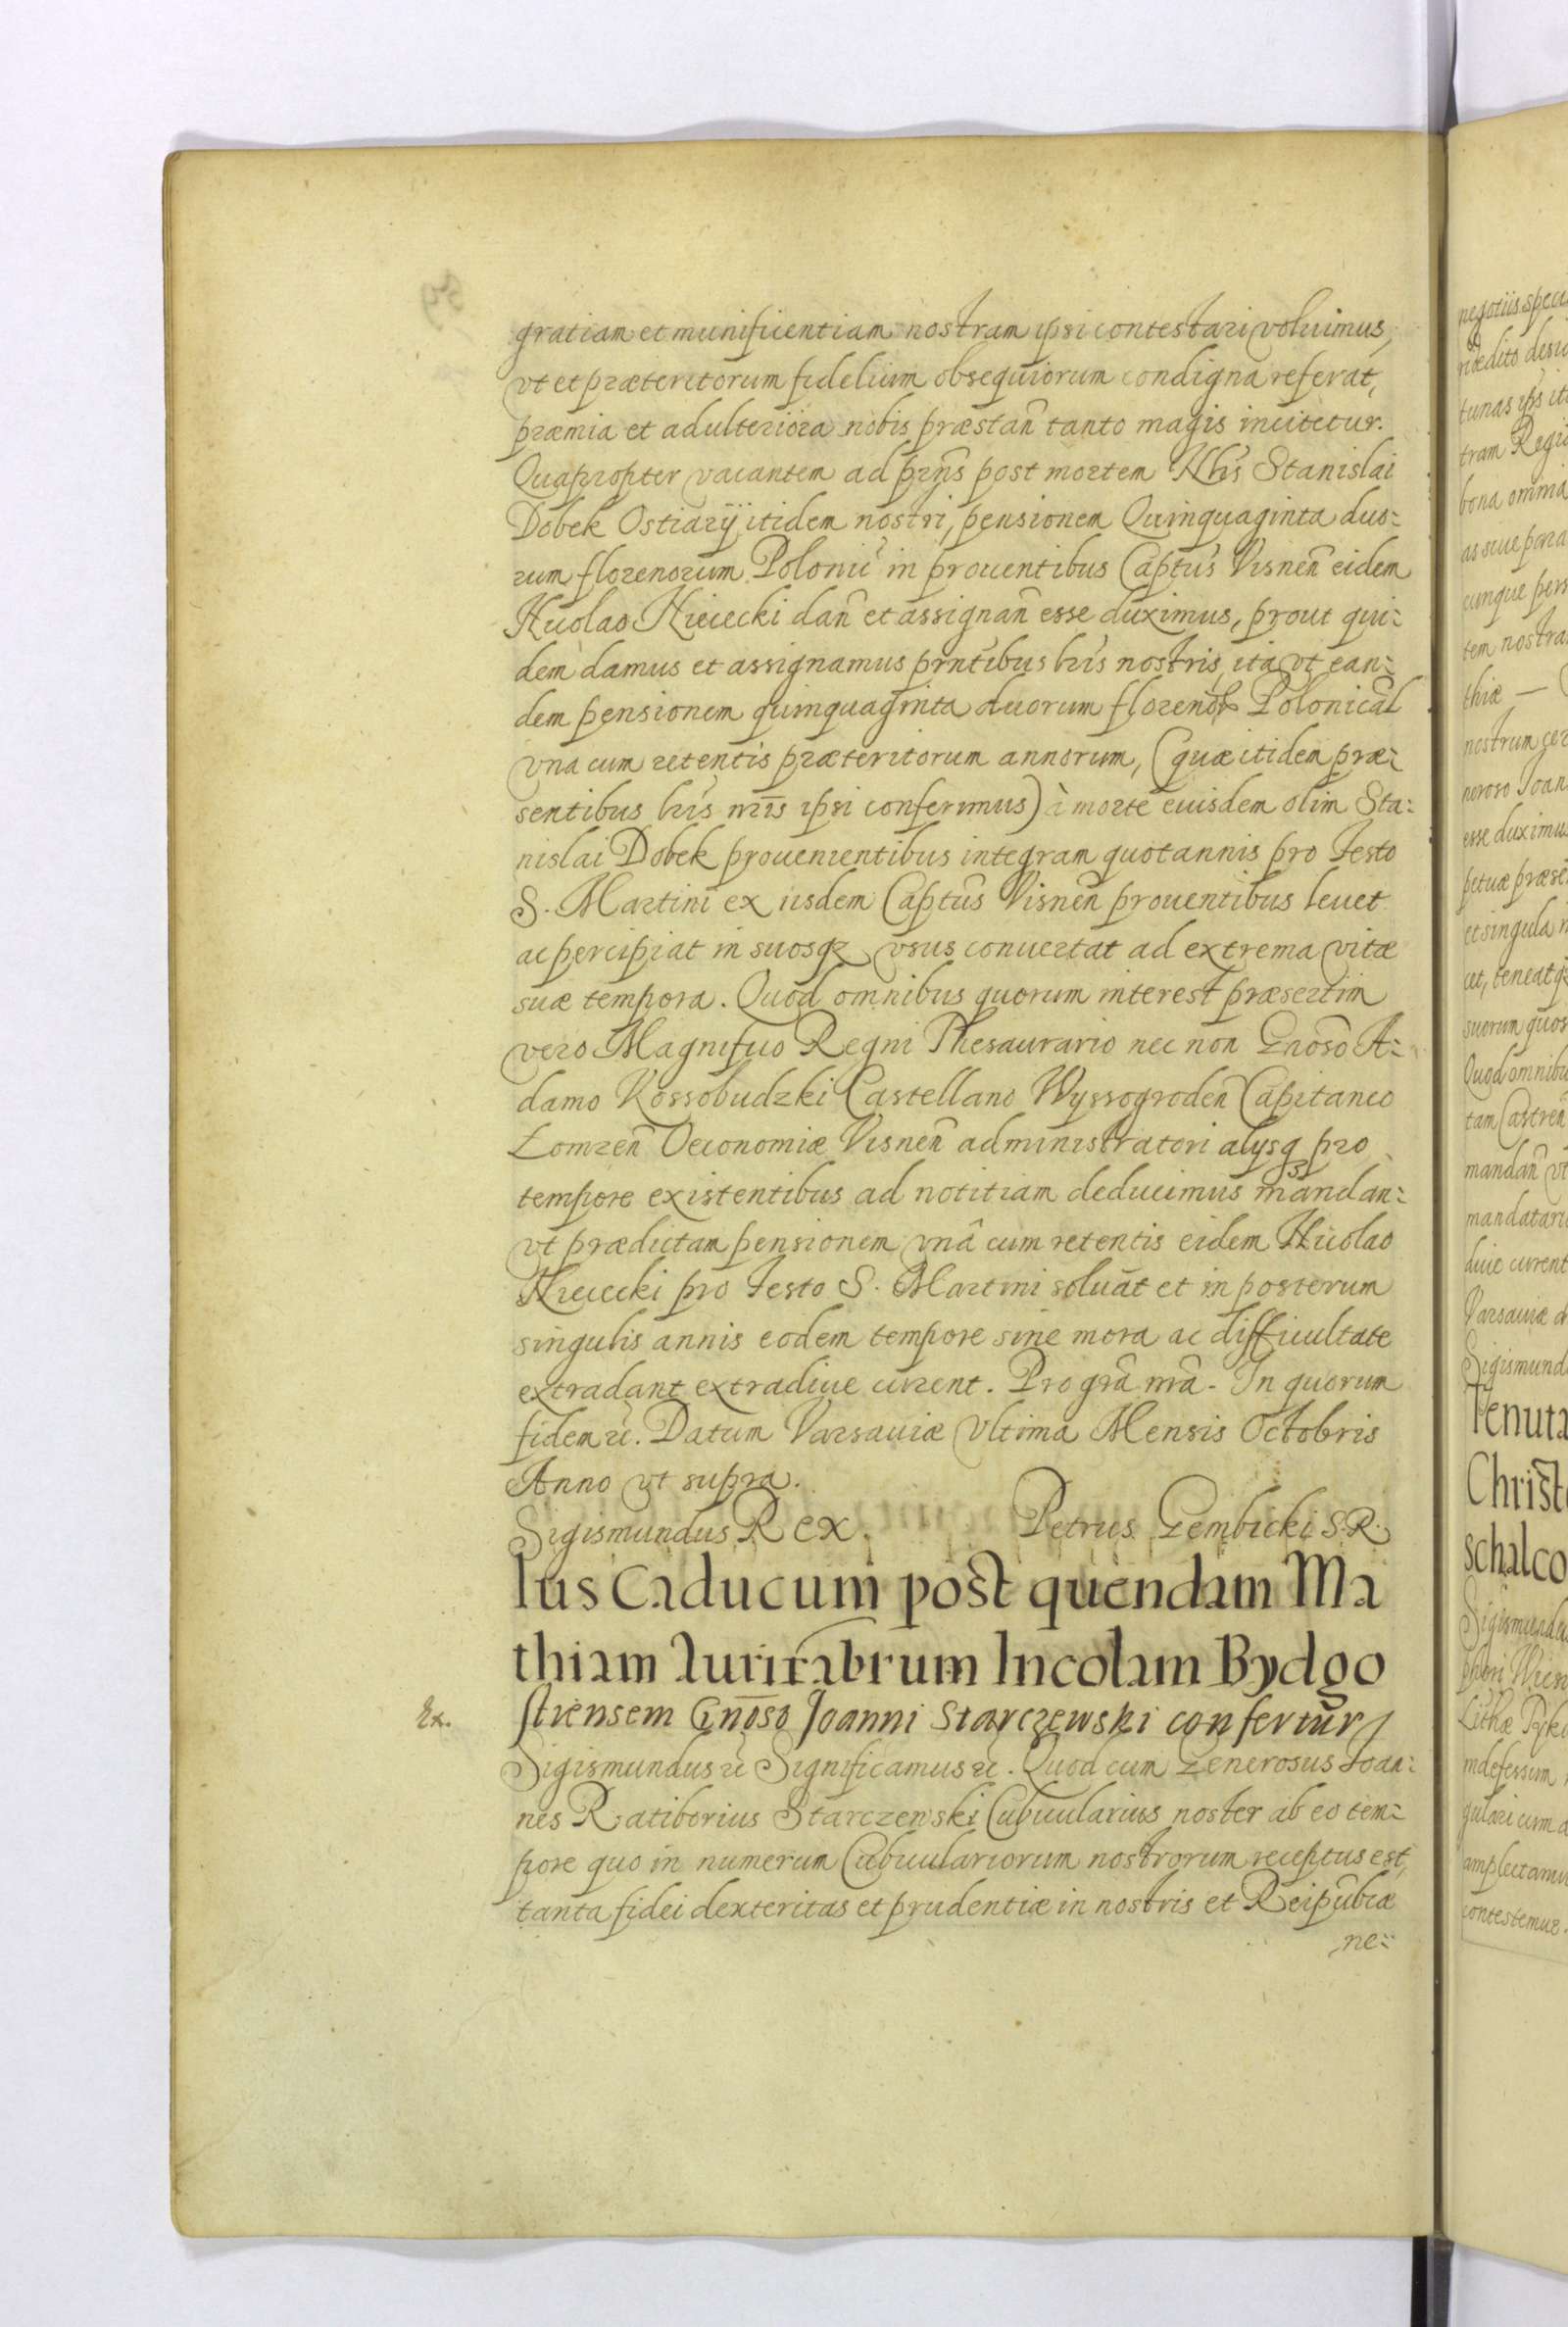 gratiam et munificentiam nostram ipsi contestari voluimus,
vt et præteritorum fidelium obsequiorum condigna referat,
præmia et ad ulteriora nobis præstañ tanto magis incitetur.
Quapropter vacantem ad prñs post mortem Nbis Stanislai
Dobek Ostiarÿ itidem nostri, pensionem Quinquaginta duo:
rum florenorum Polonic in prouentibus Capttus Visneñ eidem
Nicolao Niciecki dañ et assignañ esse duximus, prout qui:
dem damus et assignamus prntibus lris nostris, ita vt ean:
dem pensionem quinquaginta duorum floren Polonical
vna cum retentis præteritorum annorum, (quæ itidem præ:
sentibus lris nris ipsi conferimus) à morte euisdem olim Sta:
nislai Dobek prouenientibus integram quotannis pro festo
S. Martini ex iisdem Captus Visneñ prouentibus leuet
ac percipiat in suosqz vsus conuertat ad extrema vitæ
suæ tempora. Quod omnibus quorum interest præsertim
vero Magnifico Regni Thesaurario nec non Gnoso A:
damo Kossobudzki Castellano Wyssogrodeñ Capitaneo
Lomzeñ Oeconomiæ Visneñ administratori alysq pro
tempore existentibus ad notitiam deducimus mandan:
vt prædictam pensionem vnâ cum retentis eidem Nicolao
Niciecki pro festo S. Martini soluãt et in posterum
singulis annis eodem tempore sine mora ac difficultate
extradant extradiue curent. Pro grã nrã. In quorum
fidem &c. Datum Varsauiæ Vltima Mensis Octobris
Anno vt supra.
Sigismundus Rex. Petrus Gembicki S.R.
Ius Caducum post quendam Ma
thiam Aurifabrum Incolam Bydgo
Ex. stiensem Gnoso Joanni Starczewski confertur
Sigismundus &c Significamus &c. Quod cum Generosus Ioan:
nes Ratiborius Starczewski Cubicularius noster ab eo tem:
pore quo in numerum Cubiculariorum nostrorum receptus est,
tanta fidei dexteritas et prudentiæ in nostris et Reipubcæ
ne:
negotiis spec
tunas ips it
tram Regi
bona omnia
cunque per
tem nostra
thiæ —
nostrum ce
neroso Ioan
esse duximu
petuæ præse
et singula
cet, teneatq
suorum quor
Quod omnibu
tam Castreñ
mandañ vt
mandatari
diue curent
Varsauiæ d
Sigismund
Tenuta
Christ
schalco
Sigismundu
phori Wies
indefessum
gulari cum
amplectamu
contestemur.